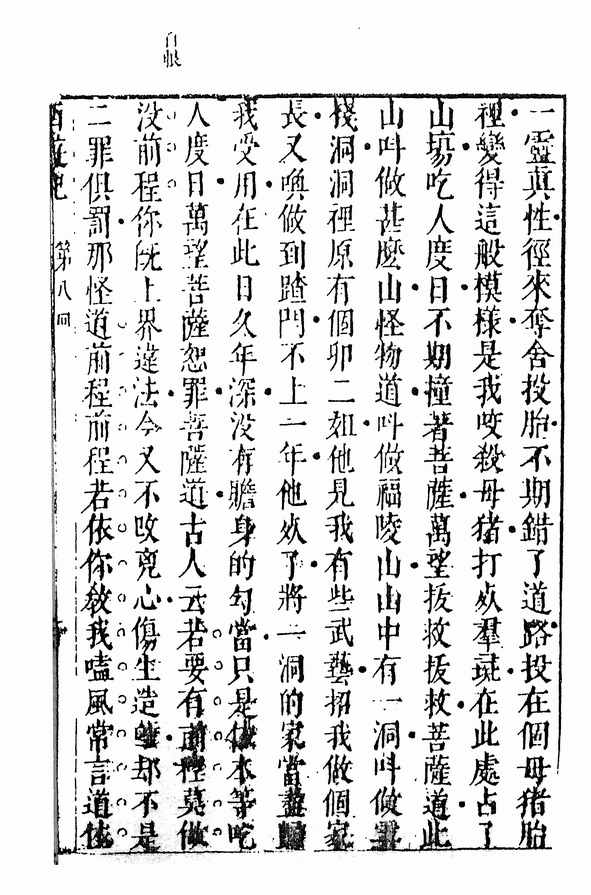 一靈真性徑來奪舍投胎不期錯了道路投在個母豬胎
裡變得這般模樣是我咬殺母豬打死羣彘在此處占了
山場吃人度日不期撞著菩薩萬望拔救拔救菩薩道此
山呌做甚麼山怪物道呌做福陵山山中有一洞呌做雲
棧洞洞裡原有個卯二姐他見我有些武藝招我做個家
長又喚做到蹅門不上一年他死了將一洞的家當盡歸
我受用在此日久年深沒有贍身的勾當只是依本等吃
人度日萬望菩薩恕罪菩薩道古人云若要有前程莫做
没前程你既上界違法今又不改兇心傷生造孽却不是
二罪俱罰那怪道前程前程若依你教我嗑風常言道依
西遊記
第八回